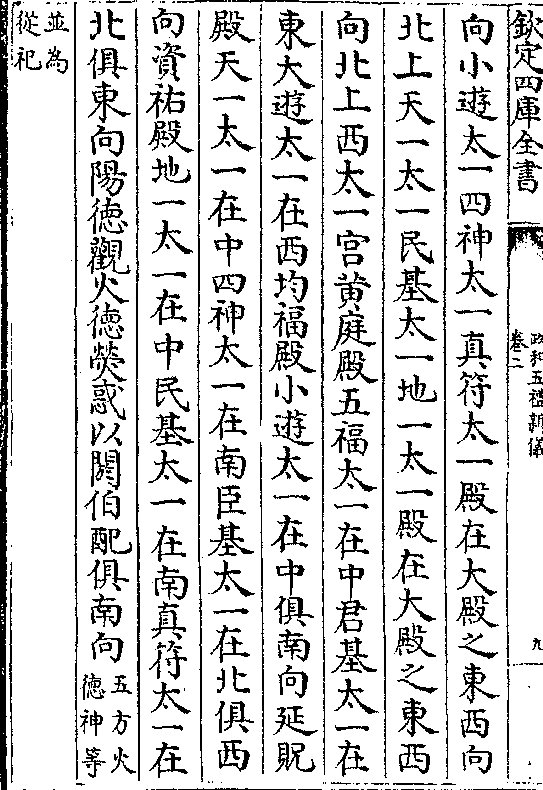 欽定四庫全書
政和五禮新儀
卷二
九
向小遊太一四神太一真符太一殿在大殿之東西向
北上天一太一民基太一地一太一殿在大殿之東西
向北上西太一宮黄庭殿五福太一在中君基太一在
東大遊太一在西均福殿小遊太一在中俱南向延貺
殿天一太一在中四神太一在南臣基太一在北俱西
向資祐殿地一太一在中民基太一在南真符太一在
北俱東向陽徳觀火徳熒惑以閼伯配俱南向五方火
徳神等
並為
從祀